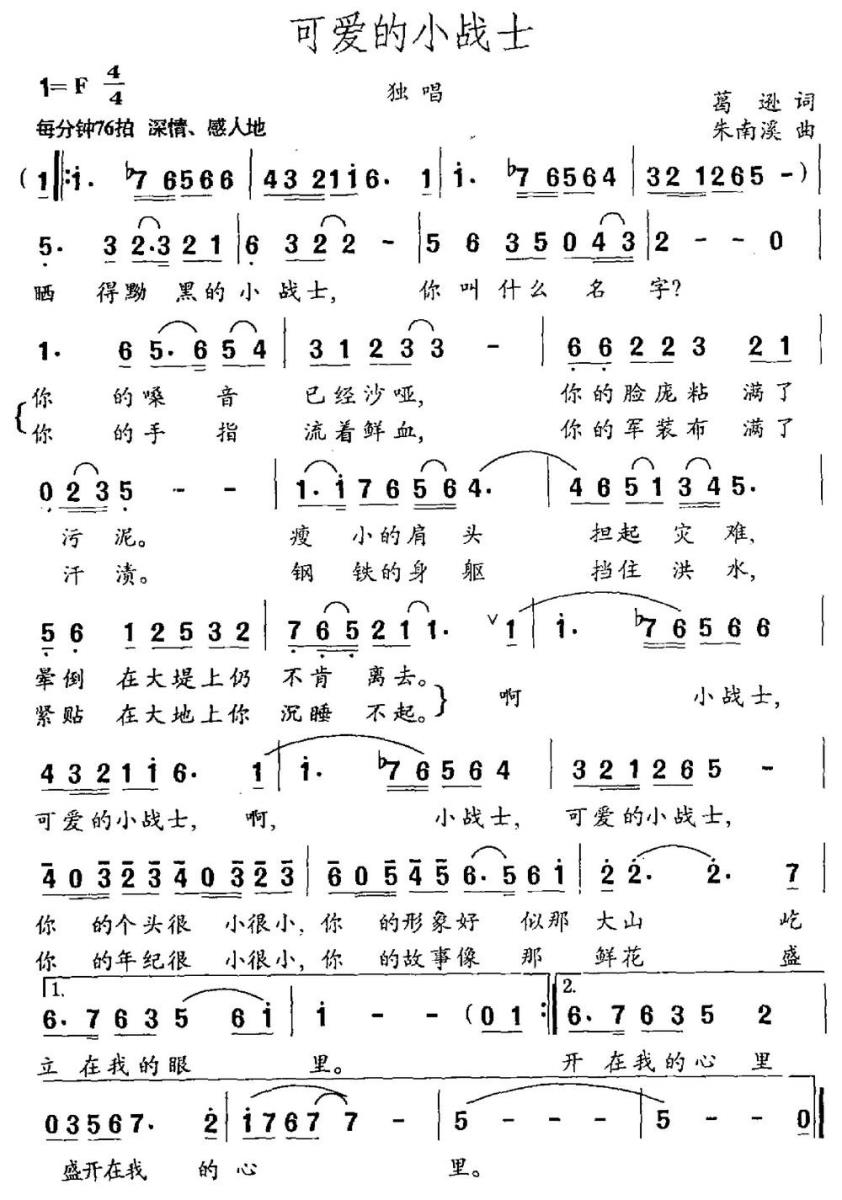 可爱的小战士
1=F 4/4
独唱
葛 逊 词
每分钟76拍 深情、感人地
朱南溪 曲
(1 ‖: i· ♭7 6566 | 43 21i6· 1 | i· ♭7 6564 | 32 1265 - ) |
5· 3 2·3 21 | 6 32 2 - | 5 6 35 043 | 2 - - 0
晒 得黝 黑的小战士, 你叫什么 名 字?
1· 6 5·6 54 | 31 23 3 - | 66 22 3 21
你 的嗓 音 已经沙哑, 你的脸庞粘 满了
你 的手 指 流着鲜血, 你的军装布 满了
023 5 - - | 1·i 76 56 4· | 46 51 34 5·
污 泥。 瘦 小的肩 头 担起 灾 难,
汗 渍。 钢 铁的身 躯 挡住 洪 水,
56 12 53 32 | 765 21 1· ∨ 1 | i· ♭76 566
晕倒 在大堤上仍 不肯 离去。
紧贴 在大地上你 沉睡 不起。 啊 小战士,
43 21 i 6· 1 | i· ♭76 564 | 321 265 -
可爱的小战士, 啊, 小战士, 可爱的小战士,
403 23 403 23 | 605 45 6·5 6i | 2 2· 2· 7
你 的个头很 小很小, 你 的形象好 似那 大山 屹
你 的年纪很 小很小, 你 的故事像 那 鲜花 盛
1. 2.
6·7 63 5 6i | i - - (01 :‖ 6·7 63 5 2
立 在我的眼 里。 开 在我的心 里
03567· 2 | i767 7 - | 5 - - - | 5 - - 0 ‖
盛开在我 的心 里。